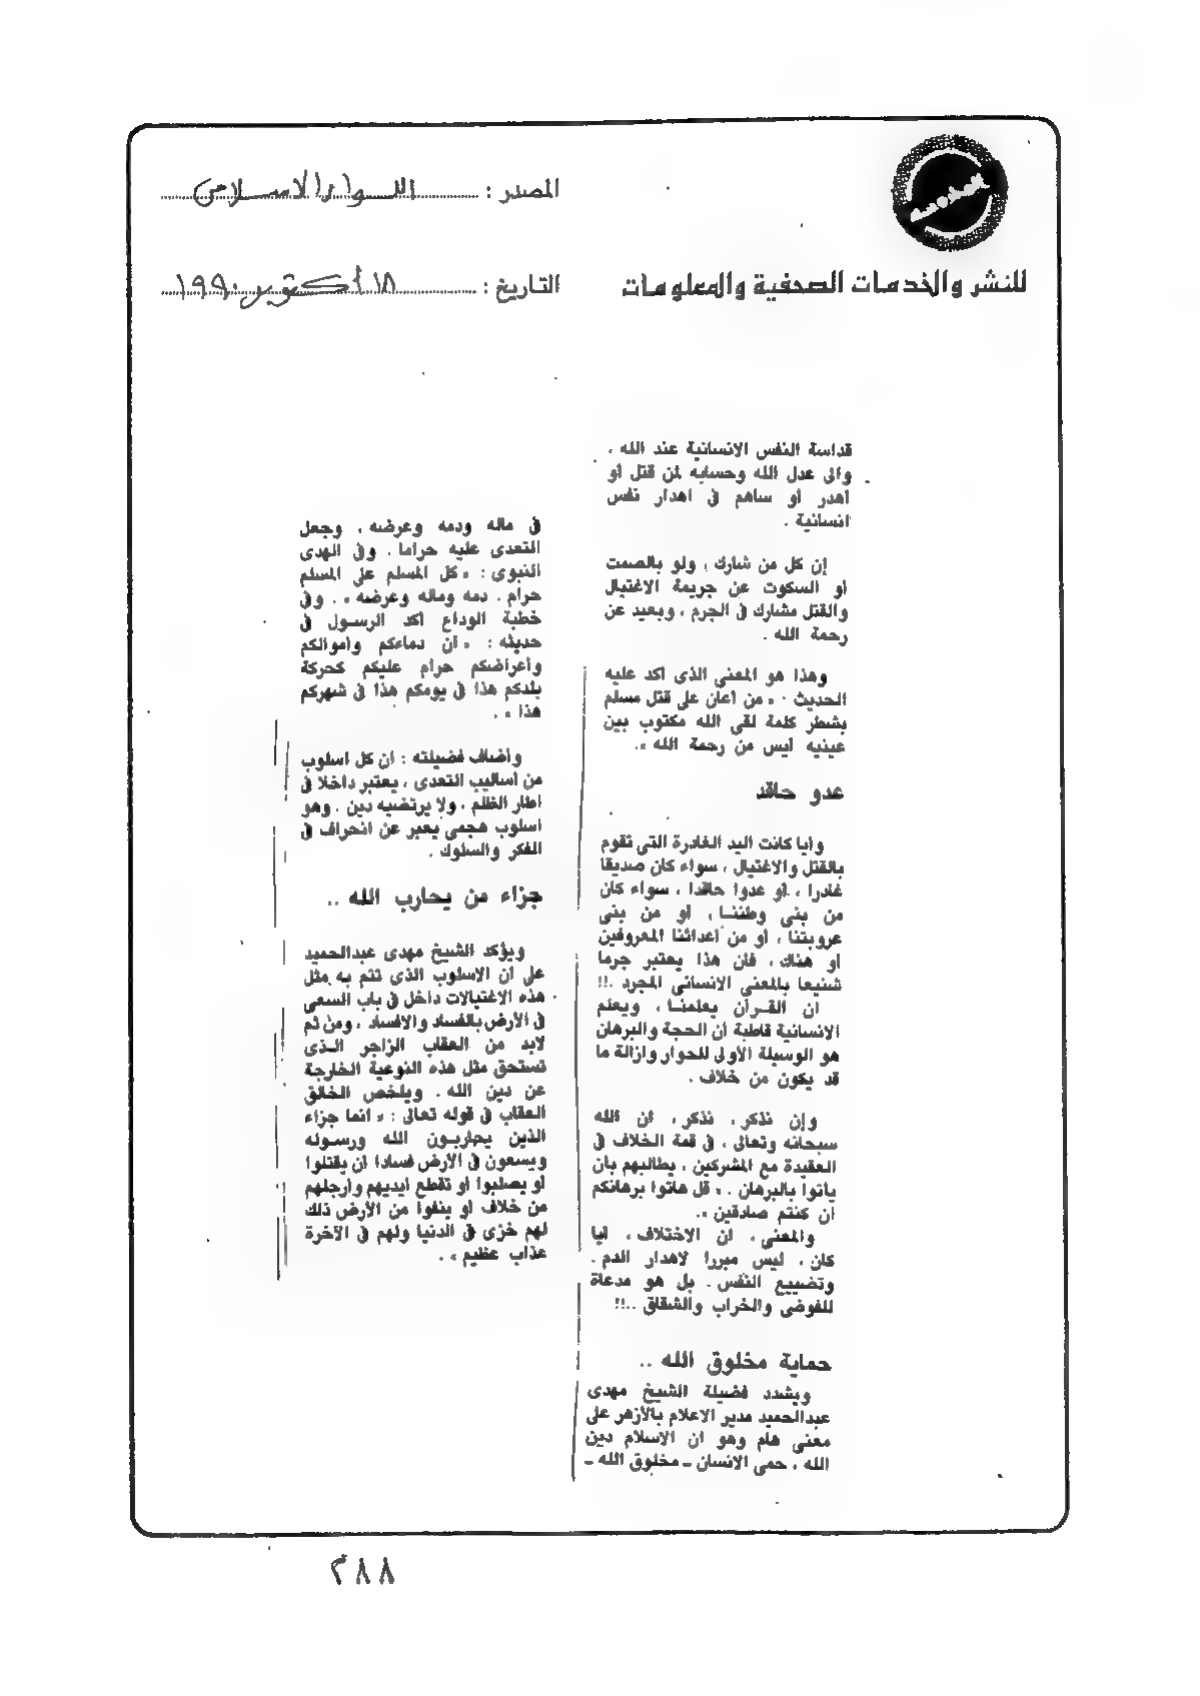 المصدر : اللواء الاسلامى
للنشر والخدمات الصحفية والمعلومات
التاريخ : ١٨ أكتوبر ١٩٩٠
قداسة النفس الانسانية عند الله ،
والى عدل الله وحسابه لمن قتل أو
أهدر أو ساهم فى اهدار نفس
انسانية .
إن كل من شارك ، ولو بالصمت
أو السكوت عن جريمة الاغتيال
والقتل مشارك فى الجرم ، وبعيد عن
رحمة الله .
وهذا هو المعنى الذى أكد عليه
الحديث . « من أعان على قتل مسلم
بشطر كلمة لقى الله مكتوب بين
عينيه آيس من رحمة الله ».
عدو حاقد
وأيا كانت اليد الغادرة التى تقوم
بالقتل والاغتيال ، سواء كان صديقا
غادرا ، أو عدوا حاقدا ، سواء كان
من بنى وطننا ، أو من بنى
عروبتنا ، أو من أعدائنا المعروفين
أو هناك ، فان هذا يعتبر جرما
شنيعا بالمعنى الانسانى المجرد .!!
ان القرآن يعلمنا ، ويعلم
الانسانية قاطبة أن الحجة والبرهان
هو الوسيلة الأولى للحوار وازالة ما
قد يكون من خلاف .
وإن نذكر ، نذكر ، أن الله
سبحانه وتعالى ، فى قمة الخلاف فى
العقيدة مع المشركين ، يطالبهم بأن
يأتوا بالبرهان . « قل هاتوا برهانكم
أن كنتم صادقين ».
والمعنى ، ان الاختلاف ، أيا
كان ، ليس مبررا لاهدار الدم .
وتضييع النفس . بل هو مدعاة
للفوضى والخراب والشقاق ..!!
حماية مخلوق الله ..
ويشدد فضيلة الشيخ مهدى
عبدالحميد مدير الاعلام بالأزهر على
معنى هام وهو ان الاسلام دين
الله ، حمى الانسان ـ مخلوق الله ـ
فى ماله ودمه وعرضه ، وجعل
التعدى عليه حراما . وفى الهدى
النبوى : « كل المسلم على المسلم
حرام . دمه وماله وعرضه » . وفى
خطبة الوداع أكد الرسول فى
حديثه : « ان دماءكم وأموالكم
وأعراضكم حرام عليكم كحركة
بلدكم هذا فى يومكم هذا فى شهركم
هذا » .
وأضاف فضيلته : ان كل اسلوب
من أساليب التعدى ، يعتبر داخلا فى
اطار الظلم ، ولا يرتضيه دين . وهو
اسلوب همجى يعبر عن انحراف فى
الفكر والسلوك .
جزاء من يحارب الله ..
ويؤكد الشيخ مهدى عبدالحميد
على أن الاسلوب الذى تتم به مثل
هذه الاغتيالات داخل فى باب السعى
فى الأرض بالفساد والافساد ، ومن ثم
لابد من العقاب الزاجر الذى
تستحق مثل هذه النوعية الخارجة
عن دين الله . ويلخص الخالق
العقاب فى قوله تعالى : « انما جزاء
الذين يحاربون الله ورسوله
ويسعون فى الأرض فسادا أن يقتلوا
أو يصلبوا أو تقطع أيديهم وأرجلهم
من خلاف أو ينفوا من الأرض ذلك
لهم خزى فى الدنيا ولهم فى الآخرة
عذاب عظيم » .
٢٨٨